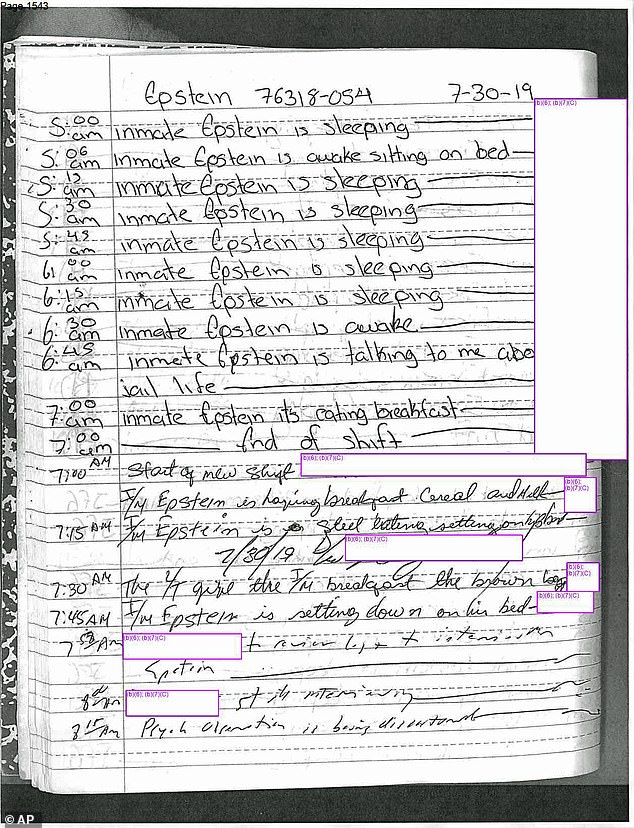 Page 1543
Epstein 76318-054 7-30-19
(b)(6); (b)(7)(C)
5:00 am inmate Epstein is sleeping
5:06 am Inmate Epstein is awake sitting on bed
5:15 am inmate Epstein is sleeping
5:30 am inmate Epstein is sleeping
5:45 am inmate Epstein is sleeping
6:00 am inmate Epstein is sleeping
6:15 am inmate Epstein is sleeping
6:30 am inmate Epstein is awake
6:45 am inmate Epstein is talking to me abo
jail life
7:00 am inmate Epstein its eating breakfast
7:00 am End of shift
7:00 AM Start of new shift (b)(6); (b)(7)(C)
I/M Epstein is having breakfast Cereal and Milk (b)(6); (b)(7)(C)
7:15 AM I/M Epstein is still Eating, setting on his bed
7/30/19 (b)(6); (b)(7)(C)
7:30 AM The give the I/M breakfast the brown bag (b)(6); (b)(7)(C)
7:45 AM I/M Epstein is setting down on his bed (b)(6); (b)(7)(C)
AM (b)(6); (b)(7)(C) to review log &
Epstein
8 AM (b)(6); (b)(7)(C) still interviewing
8:15 AM Psych Observation is being discontinued
© AP